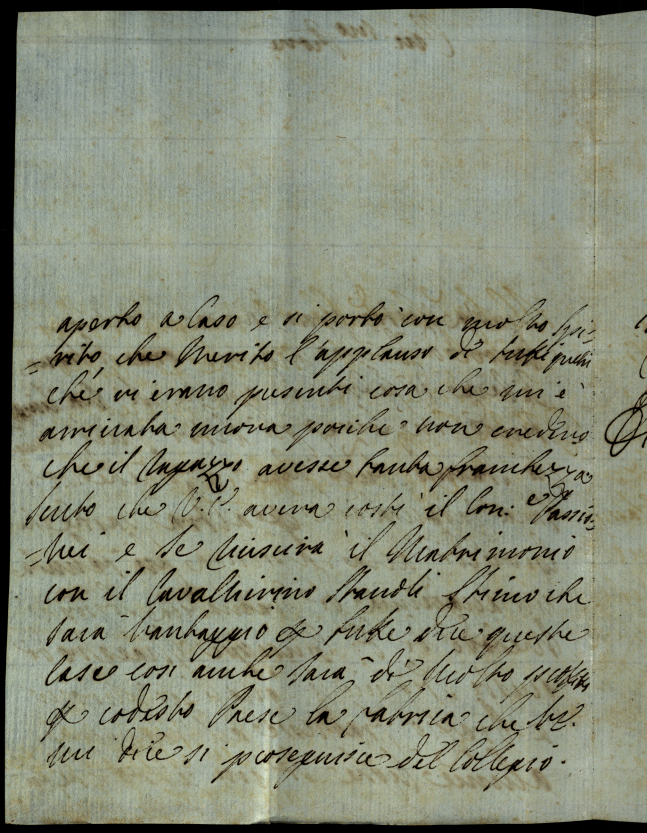 aperto a Caso e si portò con molto spi=
=rito che Meritò l'applauso di tutti quelli
che vi erano presenti cosa che mi è
arrivata nuova poiche non credevo
che il Ragazzo avesse tanta franchezza
Sento che V.P. aveva costì il Con: e Passio=
=nei e se riuscirà il Matrimonio
con il Cavallierino Stimo che
sarà vantaggio per tutte due queste
Case così anche sarà di Molto
per codesto Paese la fabrica che
mi dice si proseguisce del Collegio.